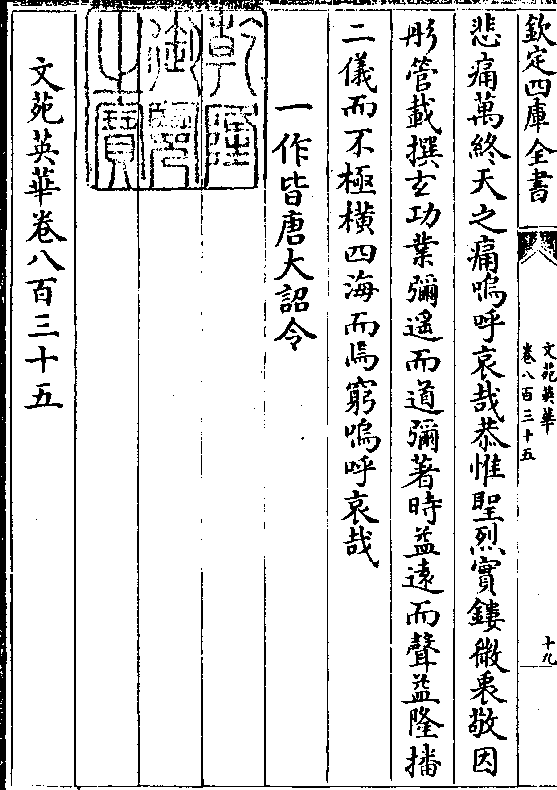 欽定四庫全書
文苑英華
卷八百三十五
十九
悲痛萬終天之痛嗚呼哀哉恭惟聖烈實鏤微衷敬因
彤管載撰𤣥功業彌遥而道彌著時益遠而聲益隆播
二儀而不極橫四海而焉窮嗚呼哀哉
一作皆唐大詔令
乾隆
御覽
之寶
文苑英華卷八百三十五